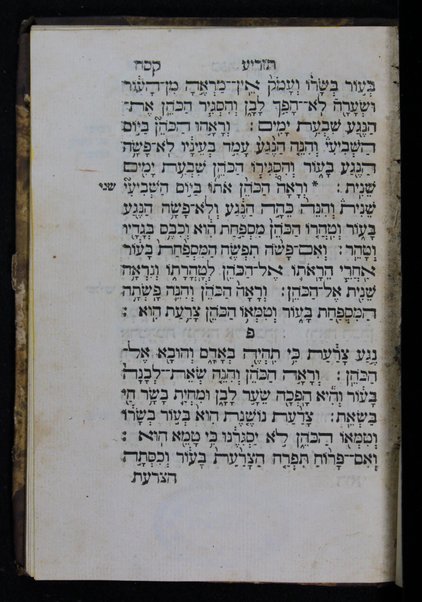 תזריע קסח
בְּע֣וֹר בְּשָׂר֗וֹ וְעָמֹק֙ אֵין־מַרְאֶ֣הָ מִן־הָע֔וֹר
וּשְׂעָרָ֖ה לֹא־הָפַ֣ךְ לָבָ֑ן וְהִסְגִּ֧יר הַכֹּהֵ֛ן אֶת־
הַנֶּ֖גַע שִׁבְעַ֥ת יָמִֽים: וְרָאָ֣הוּ הַכֹּהֵן֮ בַּיּ֣וֹם
הַשְּׁבִיעִי֒ וְהִנֵּ֤ה הַנֶּ֙גַע֙ עָמַ֣ד בְּעֵינָ֔יו לֹֽא־פָשָׂ֥ה
הַנֶּ֖גַע בָּע֑וֹר וְהִסְגִּיר֧וֹ הַכֹּהֵ֛ן שִׁבְעַ֥ת יָמִ֖ים
שֵׁנִֽית: * וְרָאָה֩ הַכֹּהֵ֨ן אֹת֜וֹ בַּיּ֣וֹם הַשְּׁבִיעִי֮ שני
שֵׁנִית֒ וְהִנֵּה֙ כֵּהָ֣ה הַנֶּ֔גַע וְלֹא־פָשָׂ֥ה הַנֶּ֖גַע
בָּע֑וֹר וְטִהֲר֤וֹ הַכֹּהֵן֙ מִסְפַּ֣חַת הִ֔וא וְכִבֶּ֥ס בְּגָדָ֖יו
וְטָהֵֽר: וְאִם־פָּשֹׂ֨ה תִפְשֶׂ֤ה הַמִּסְפַּ֙חַת֙ בָּע֔וֹר
אַחֲרֵ֧י הֵרָאֹת֛וֹ אֶל־הַכֹּהֵ֖ן לְטָהֳרָת֑וֹ וְנִרְאָ֥ה
שֵׁנִ֖ית אֶל־הַכֹּהֵֽן: וְרָאָה֙ הַכֹּהֵ֔ן וְהִנֵּ֛ה פָּשְׂתָ֥ה
הַמִּסְפַּ֖חַת בָּע֑וֹר וְטִמְּא֥וֹ הַכֹּהֵ֖ן צָרַ֥עַת הִֽוא:
פ
נֶ֣גַע צָרַ֔עַת כִּ֥י תִהְיֶ֖ה בְּאָדָ֑ם וְהוּבָ֖א אֶל־
הַכֹּהֵֽן: וְרָאָ֣ה הַכֹּהֵ֗ן וְהִנֵּ֤ה שְׂאֵת־לְבָנָה֙
בָּע֔וֹר וְהִ֕יא הָפְכָ֖ה שֵׂעָ֣ר לָבָ֑ן וּמִֽחְיַ֛ת בָּשָׂ֥ר חַ֖י
בַּשְׂאֵֽת: צָרַ֨עַת נוֹשֶׁ֤נֶת הִוא֙ בְּע֣וֹר בְּשָׂר֔וֹ
וְטִמְּא֖וֹ הַכֹּהֵ֑ן לֹ֣א יַסְגִּרֶ֔נּוּ כִּ֥י טָמֵ֖א הֽוּא:
וְאִם־פָּר֨וֹחַ תִּפְרַ֤ח הַצָּרַ֙עַת֙ בָּע֔וֹר וְכִסְּתָ֣ה
הצרעת